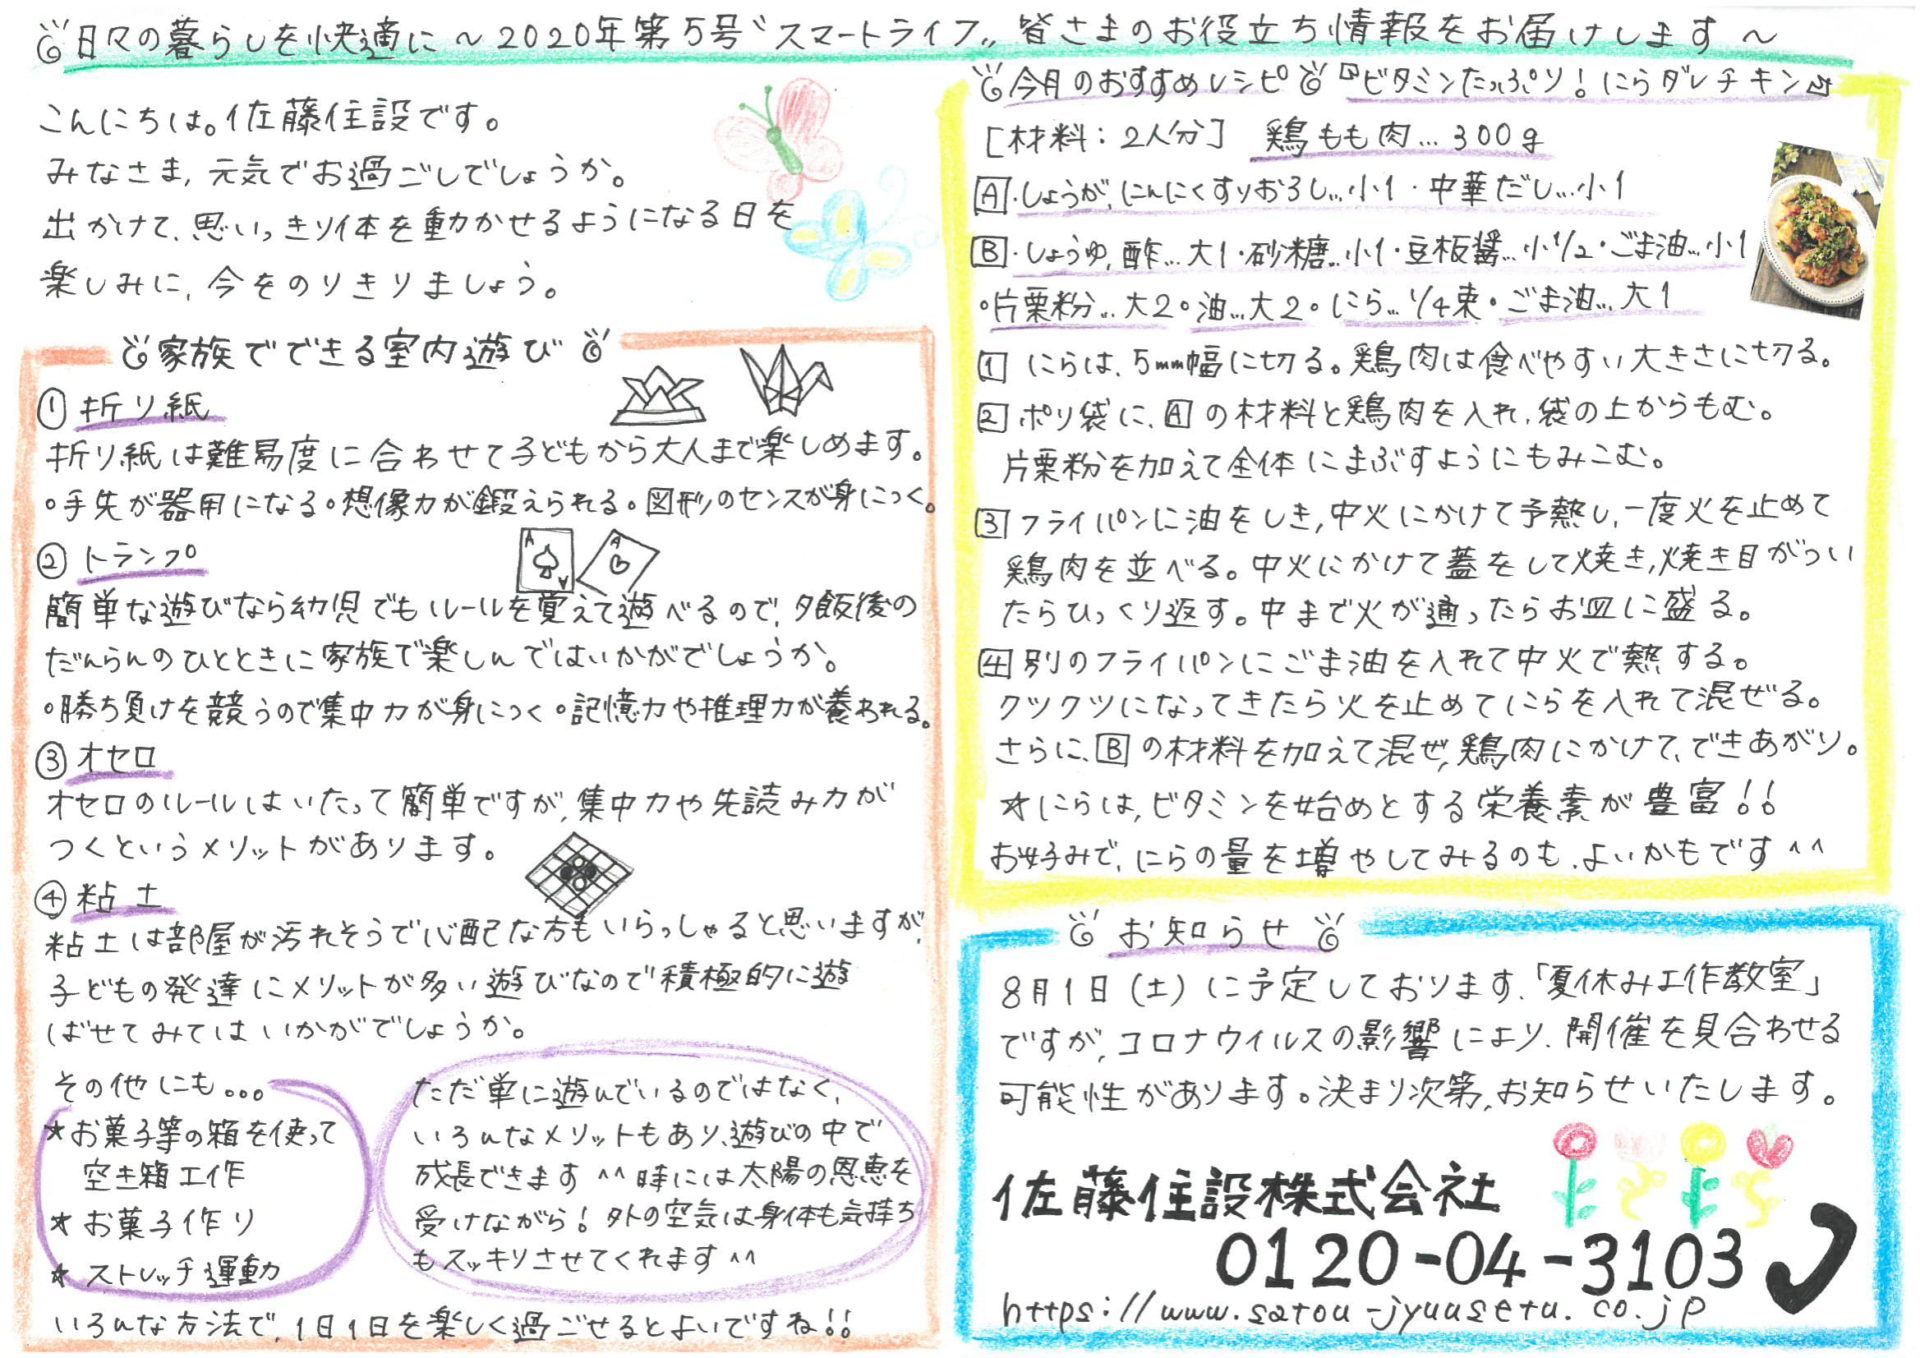 日々の暮らしを快適に～2020年第5号〝スマートライフ〟皆さまのお役立ち情報をお届けします～
こんにちは。佐藤住設です。
みなさま、元気でお過ごしでしょうか。
出かけて、思いっきり体を動かせるようになる日を
楽しみに、今をのりきりましょう。
家族でできる室内遊び
① 折り紙
折り紙は難易度に合わせて子どもから大人まで楽しめます。
○手先が器用になる○想像力が鍛えられる○図形のセンスが身につく。
② トランプ
A A A
簡単な遊びなら幼児でもルールを覚えて遊べるので、夕飯後の
だんらんのひとときに家族で楽しんではいかがでしょうか。
○勝ち負けを競うので集中力が身につく○記憶力や推理力が養われる。
③ オセロ
オセロのルールはいたって簡単ですが、集中力や先読み力が
つくというメリットがあります。
④ 粘土
粘土は部屋が汚れそうで心配な方もいらっしゃると思いますが、
子どもの発達にメリットが多い遊びなので積極的に遊
ばせてみてはいかがでしょうか。
その他にも...
★お菓子等の箱を使って
空き箱工作
★お菓子作り
★ストレッチ運動
ただ単に遊んでいるのではなく、
いろんなメリットもあり、遊びの中で
成長できます^^時には太陽の恩恵を
受けながら!外の空気は身体も気持ち
もスッキリさせてくれます^^
いろんな方法で、1日1日を楽しく過ごせるとよいですね!!
今月のおすすめレシピ『ビタミンたっぷり!にらダレチキン』
[材料:2人分] 鶏もも肉...300g
A・しょうが、にんにくすりおろし...小1・中華だし...小1
B・しょうゆ、酢...大1・砂糖...小1・豆板醤...小1/2・ごま油...小1
・片栗粉...大2・油...大2・にら...1/4束・ごま油...大1
1 にらは、5mm幅に切る。鶏肉は食べやすい大きさに切る。
2 ポリ袋に、Aの材料と鶏肉を入れ、袋の上からもむ。
片栗粉を加えて全体にまぶすようにもみこむ。
3 フライパンに油をしき、中火にかけて予熱し、一度火を止めて
鶏肉を並べる。中火にかけて蓋をして焼き、焼き目がつい
たらひっくり返す。中まで火が通ったらお皿に盛る。
4 別のフライパンにごま油を入れて中火で熱する。
クツクツになってきたら火を止めてにらを入れて混ぜる。
さらに、Bの材料を加えて混ぜ、鶏肉にかけて、できあがり。
★にらは、ビタミンを始めとする栄養素が豊富!!
お好みで、にらの量を増やしてみるのも、よいかもです^^
お知らせ
8月1日(土)に予定しております、「夏休み工作教室」
ですが、コロナウイルスの影響により、開催を見合わせる
可能性があります。決まり次第、お知らせいたします。
佐藤住設株式会社
0120-04-3103
https://www.satou-jyuusetu.co.jp